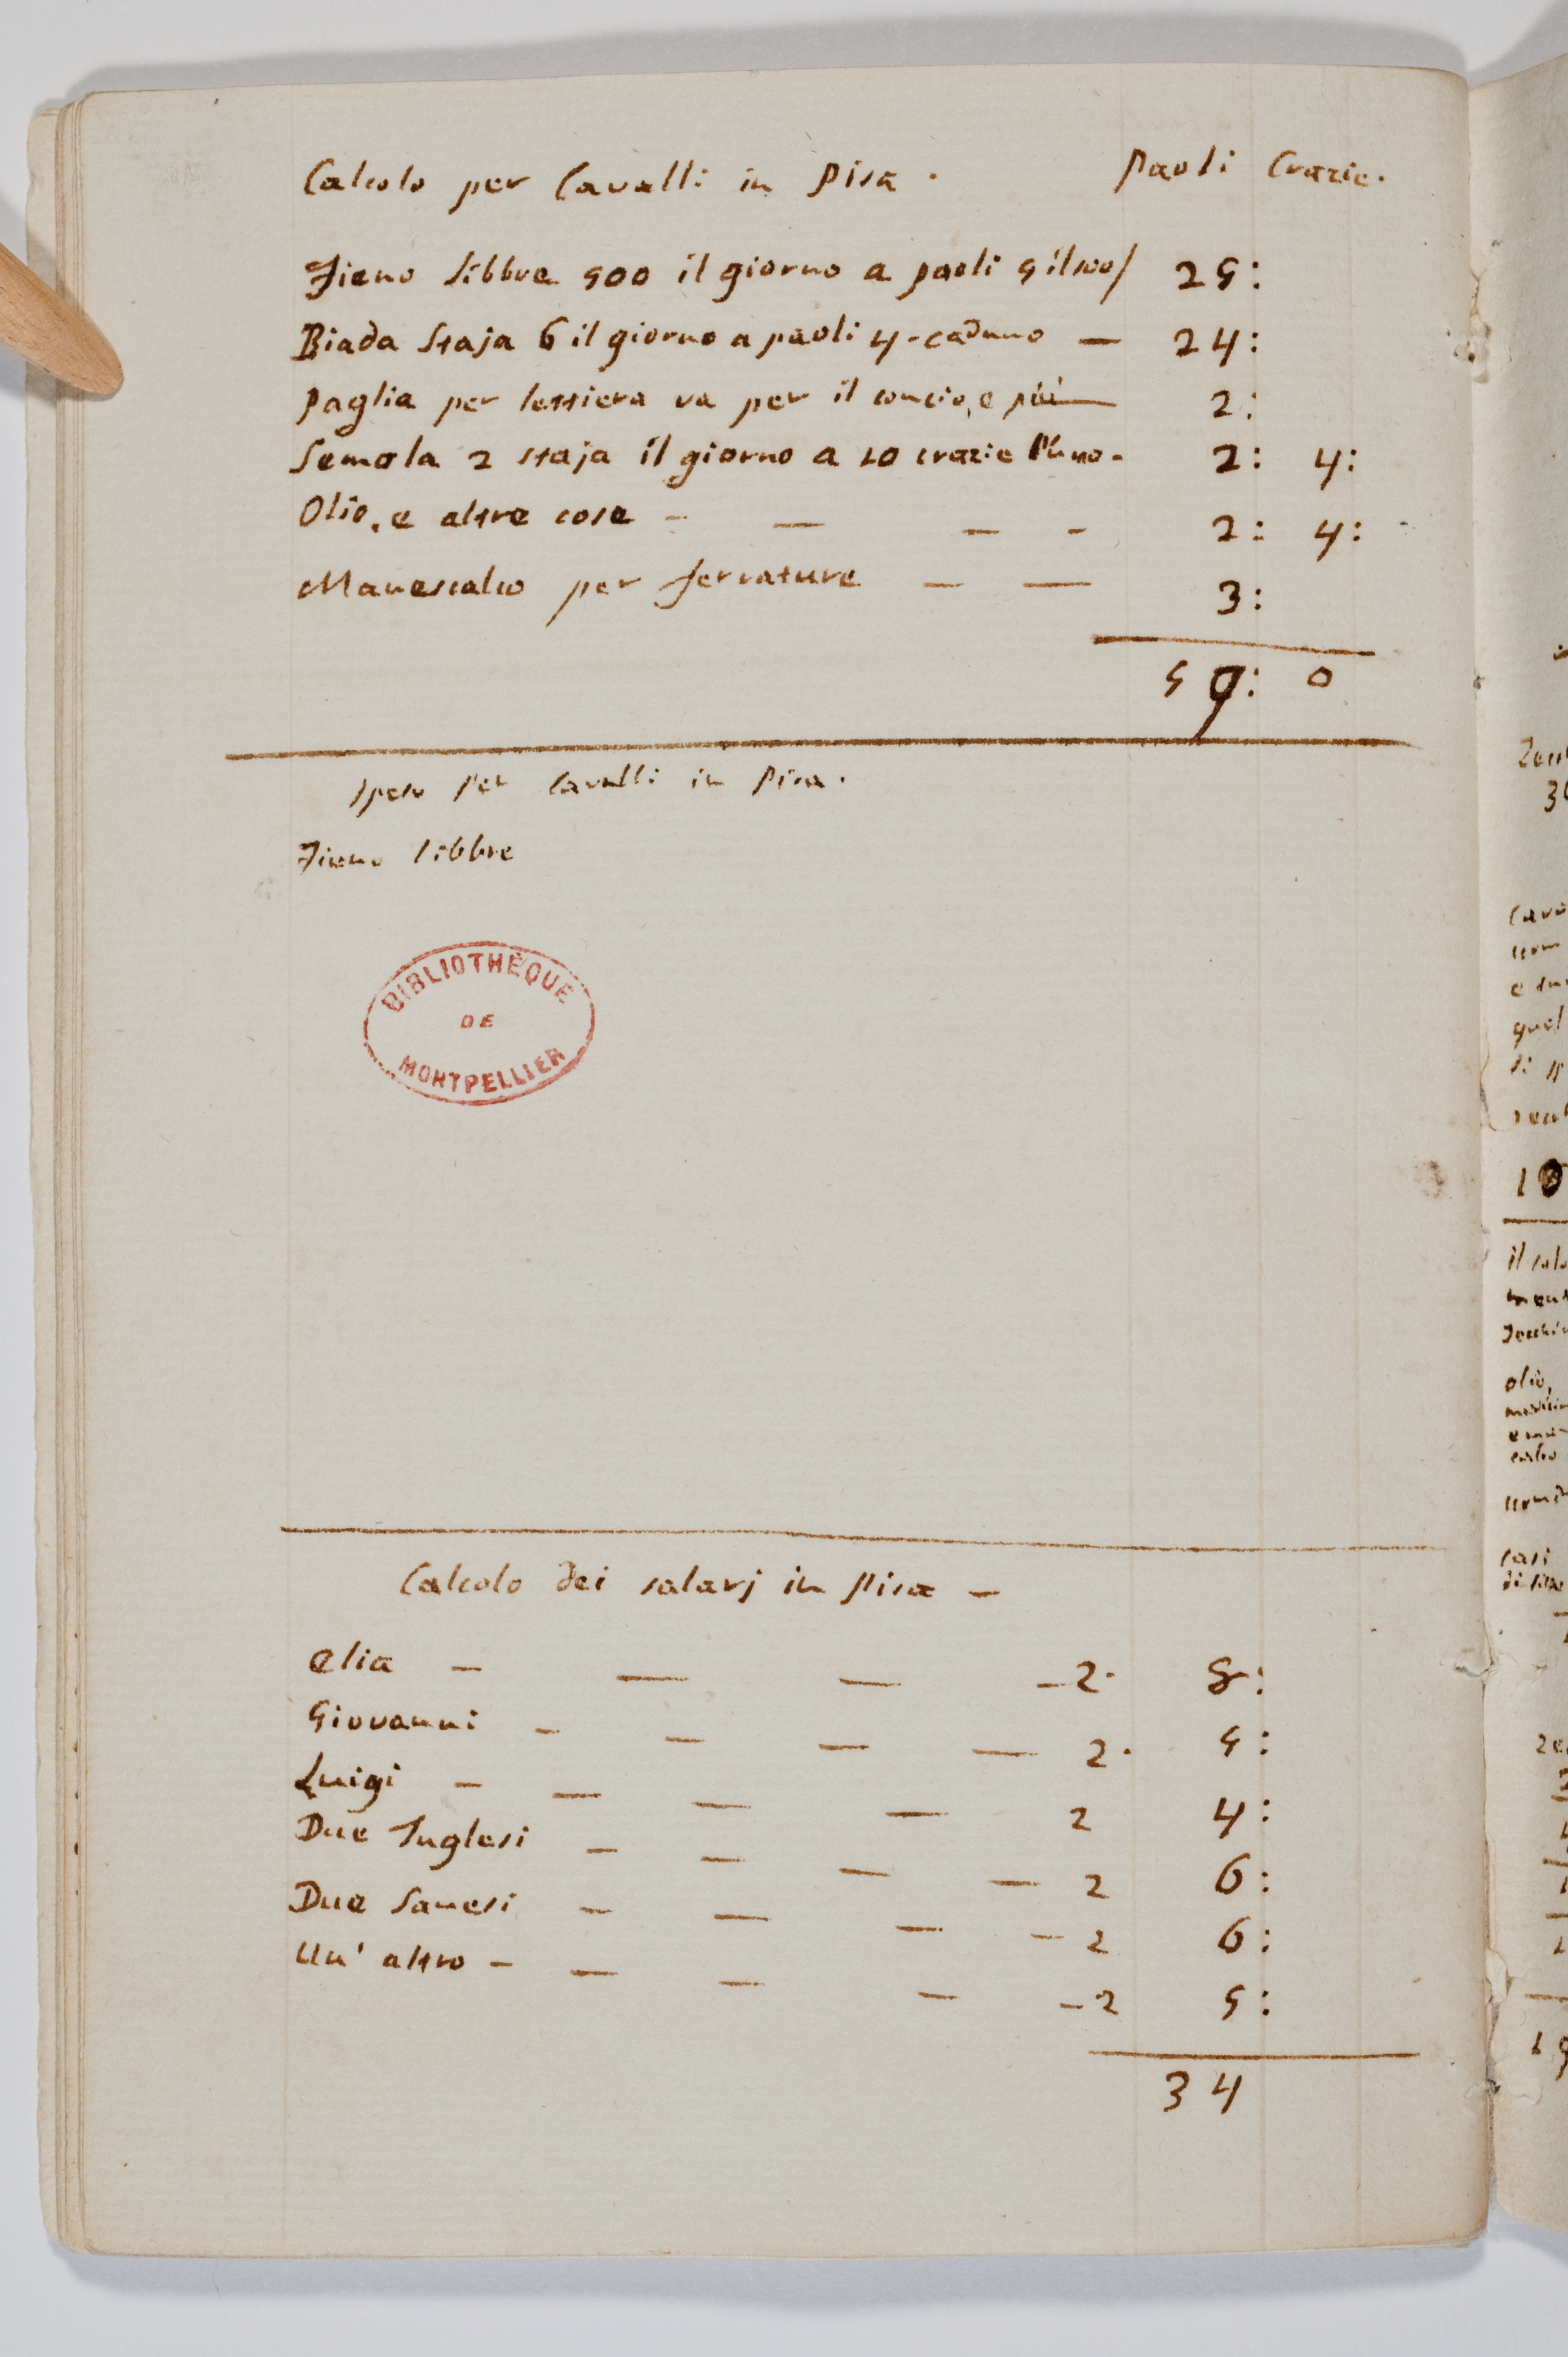 Calcolo per Cavalli in Pisa. Paoli Crazie.
Fieno libbre 500 il giorno a paoli 5 il 100/ 25:
Biada Staja 6 il giorno a paoli 4 - caduno — 24:
Paglia per lettiera va per il concio, e più — 2:
Semola 2 staja il giorno a 10 crazie l'uno - 2: 4:
Olio, e altre cose - — — - 2: 4:
Manescalco per ferrature — — 3:
59: 0
Speso per Cavalli in Pisa.
Fieno libbre
BIBLIOTHÈQUE
DE
MONTPELLIER
Calcolo dei salarj in Pisa —
Elia — — — — 2. 8:
Giovanni - — — — 2. 5:
Luigi — — — — 2 4:
Due Inglesi — — — — 2 6:
Due Sanesi — — — — 2 6:
Un' altro — — — — — 2 5:
34